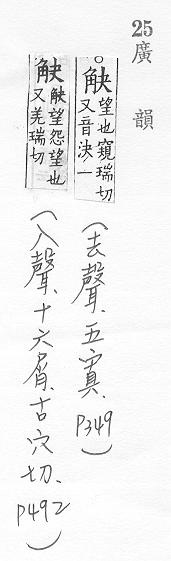 25 廣韻
○觖望也窺瑞切
又音決一
(去聲、五寘、P349)
觖觖望怨望也
又羌瑞切
(入聲、十六屑、古穴切、P492)